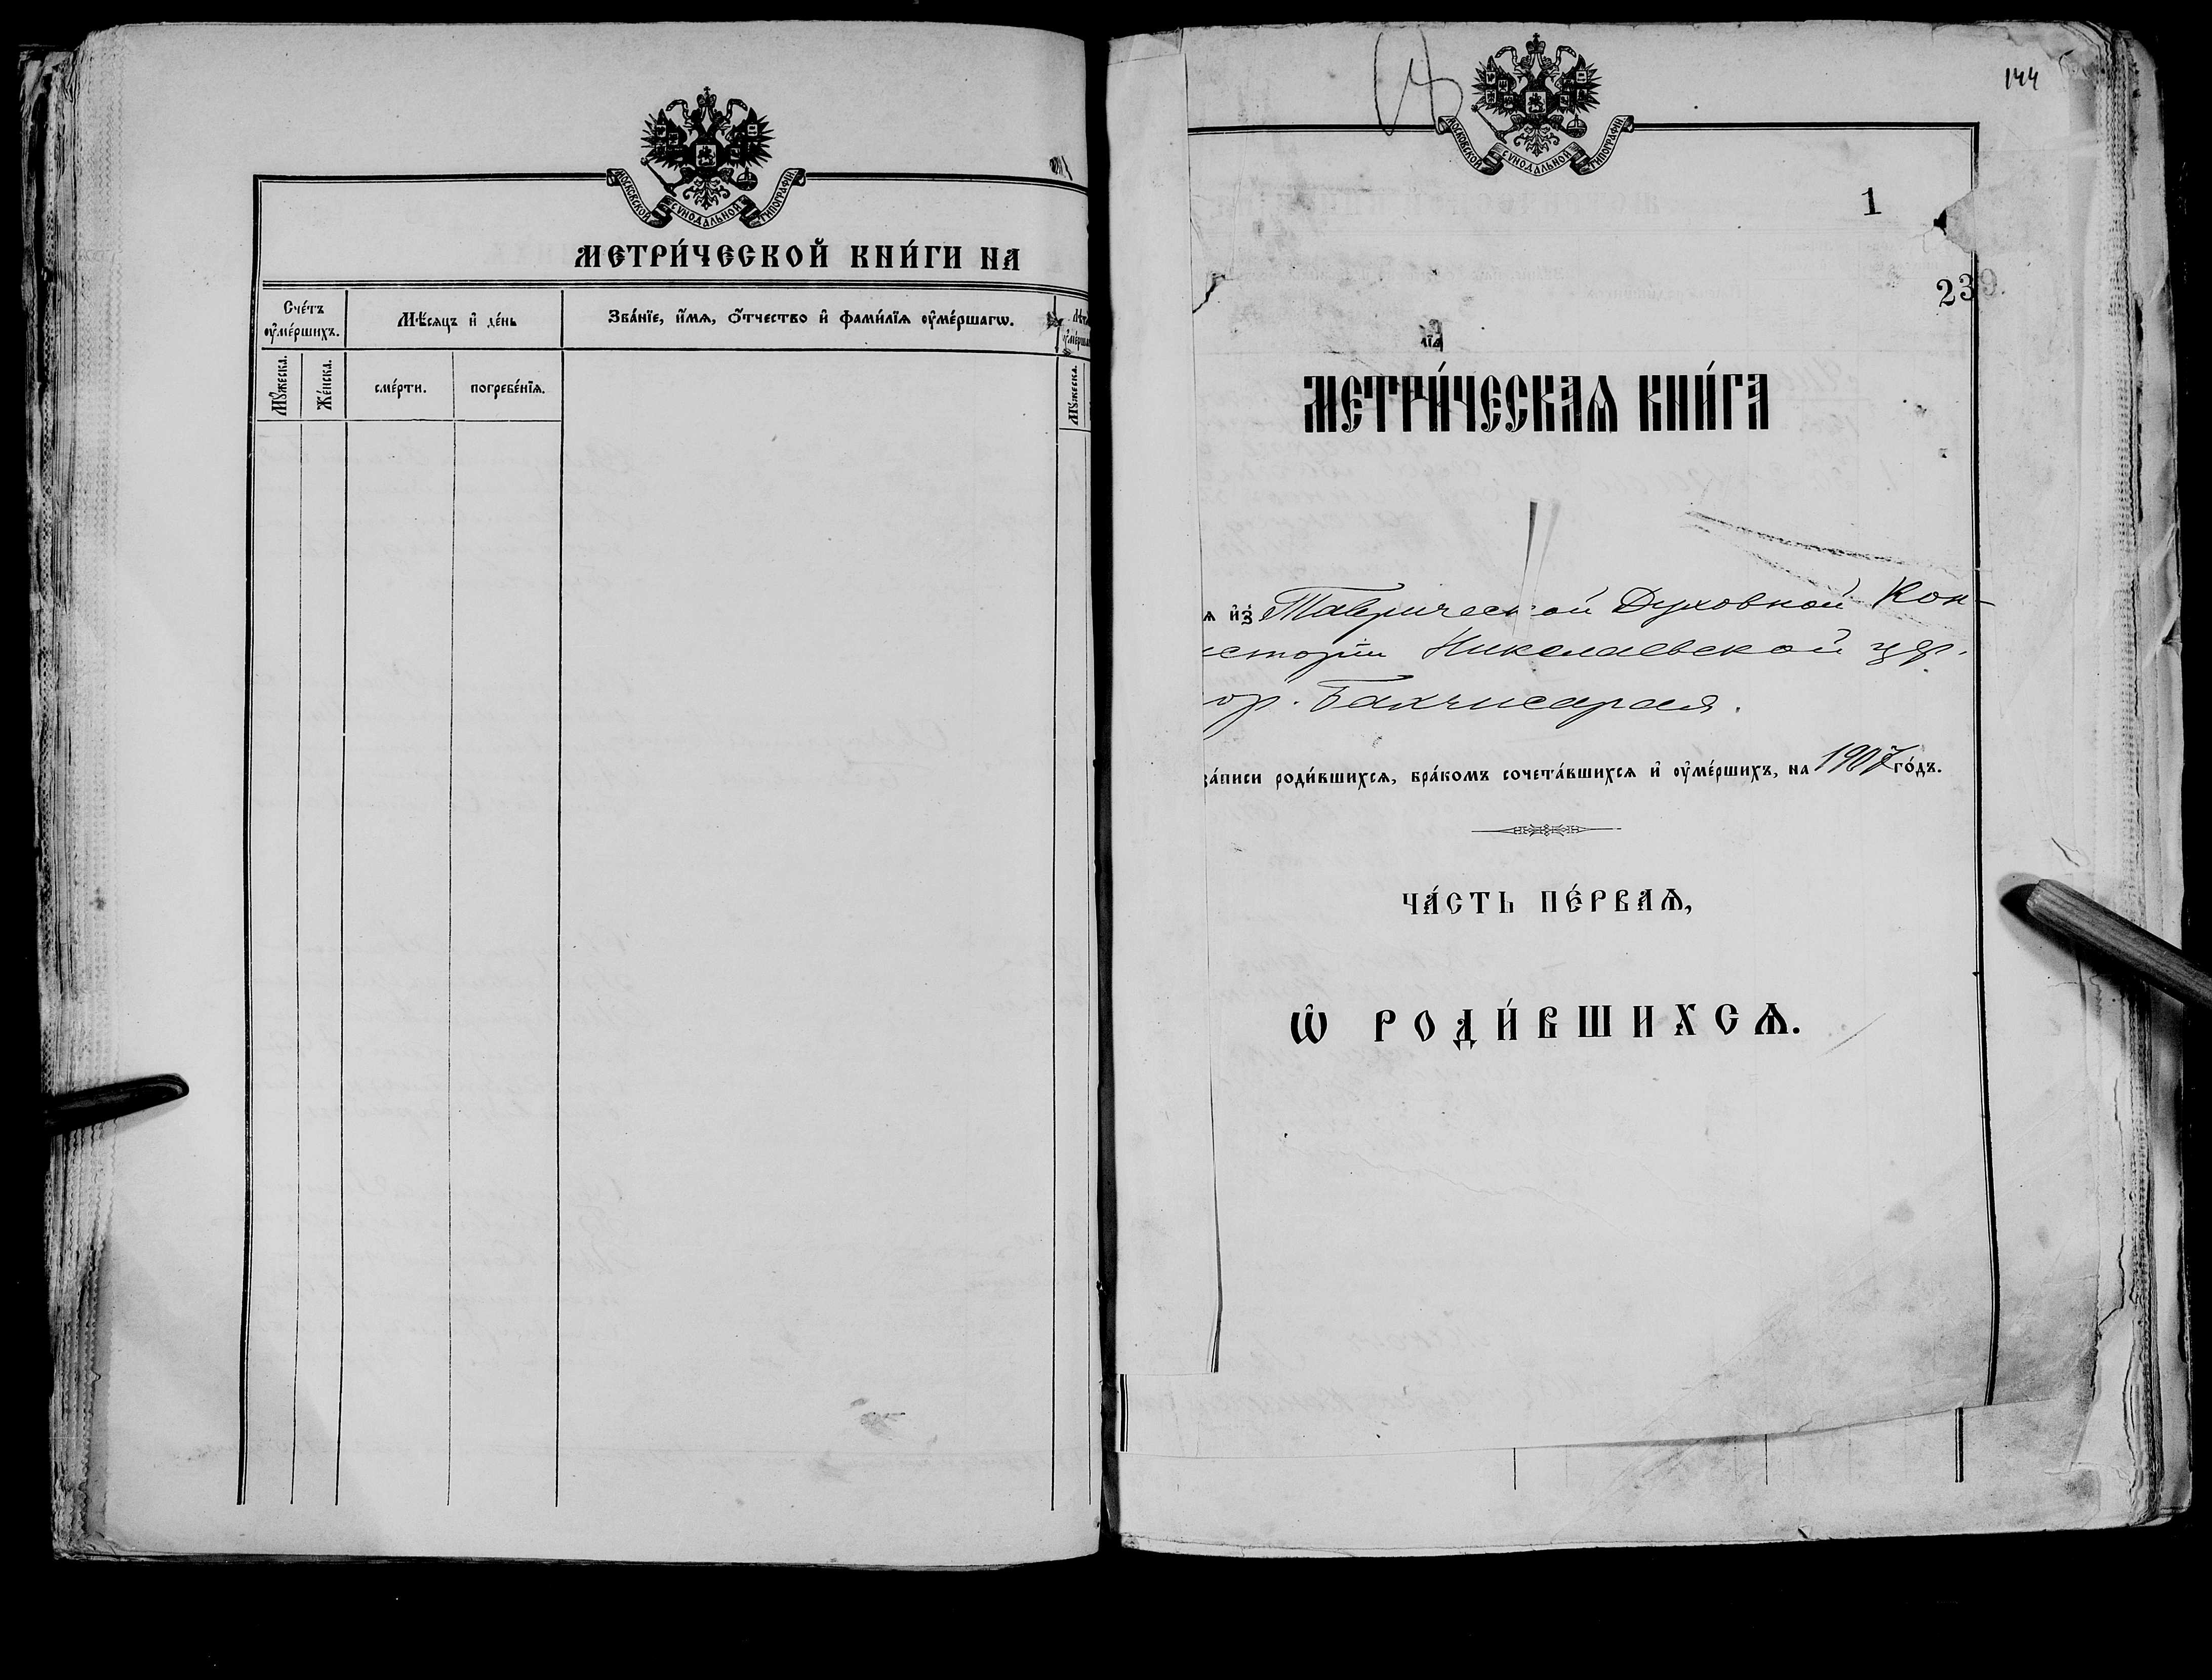 МОСКОВСКОЙ СѴНОДАЛЬНОЙ ТИПОГРАФІИ
МЕТРИ́ЧЕСКОЙ КНИ́ГИ НА
Сче́тъ ᲂу҆ме́ршихъ.
Мѣ́сяцъ и҆ де́нь
Зва́нїе, и҆́мѧ, ѻ҆́тчество и҆ фами́лїѧ ᲂу҆ме́ршагѡ.
Мꙋ́жеска.
Же́нска.
сме́рти.
погребе́нїѧ.
Мꙋ́жеска.
144
МОСКОВСКОЙ СѴНОДАЛЬНОЙ ТИПОГРАФІИ
1
239.
МЕТРИ́ЧЕСКАѦ КНИ́ГА
ѧ и҆з̾ Таврической Духовной Кон-
систоріи Николаевской цер.
гор. Бахчисарая.
за́писи роди́вшихсѧ, бра́комъ сочета́вшихсѧ и҆ ᲂу҆ме́ршихъ, на 1907 го́дъ.
ЧА́СТЬ ПЕ́РВАѦ,
Ѡ҆ РОДИ́ВШИХСѦ.